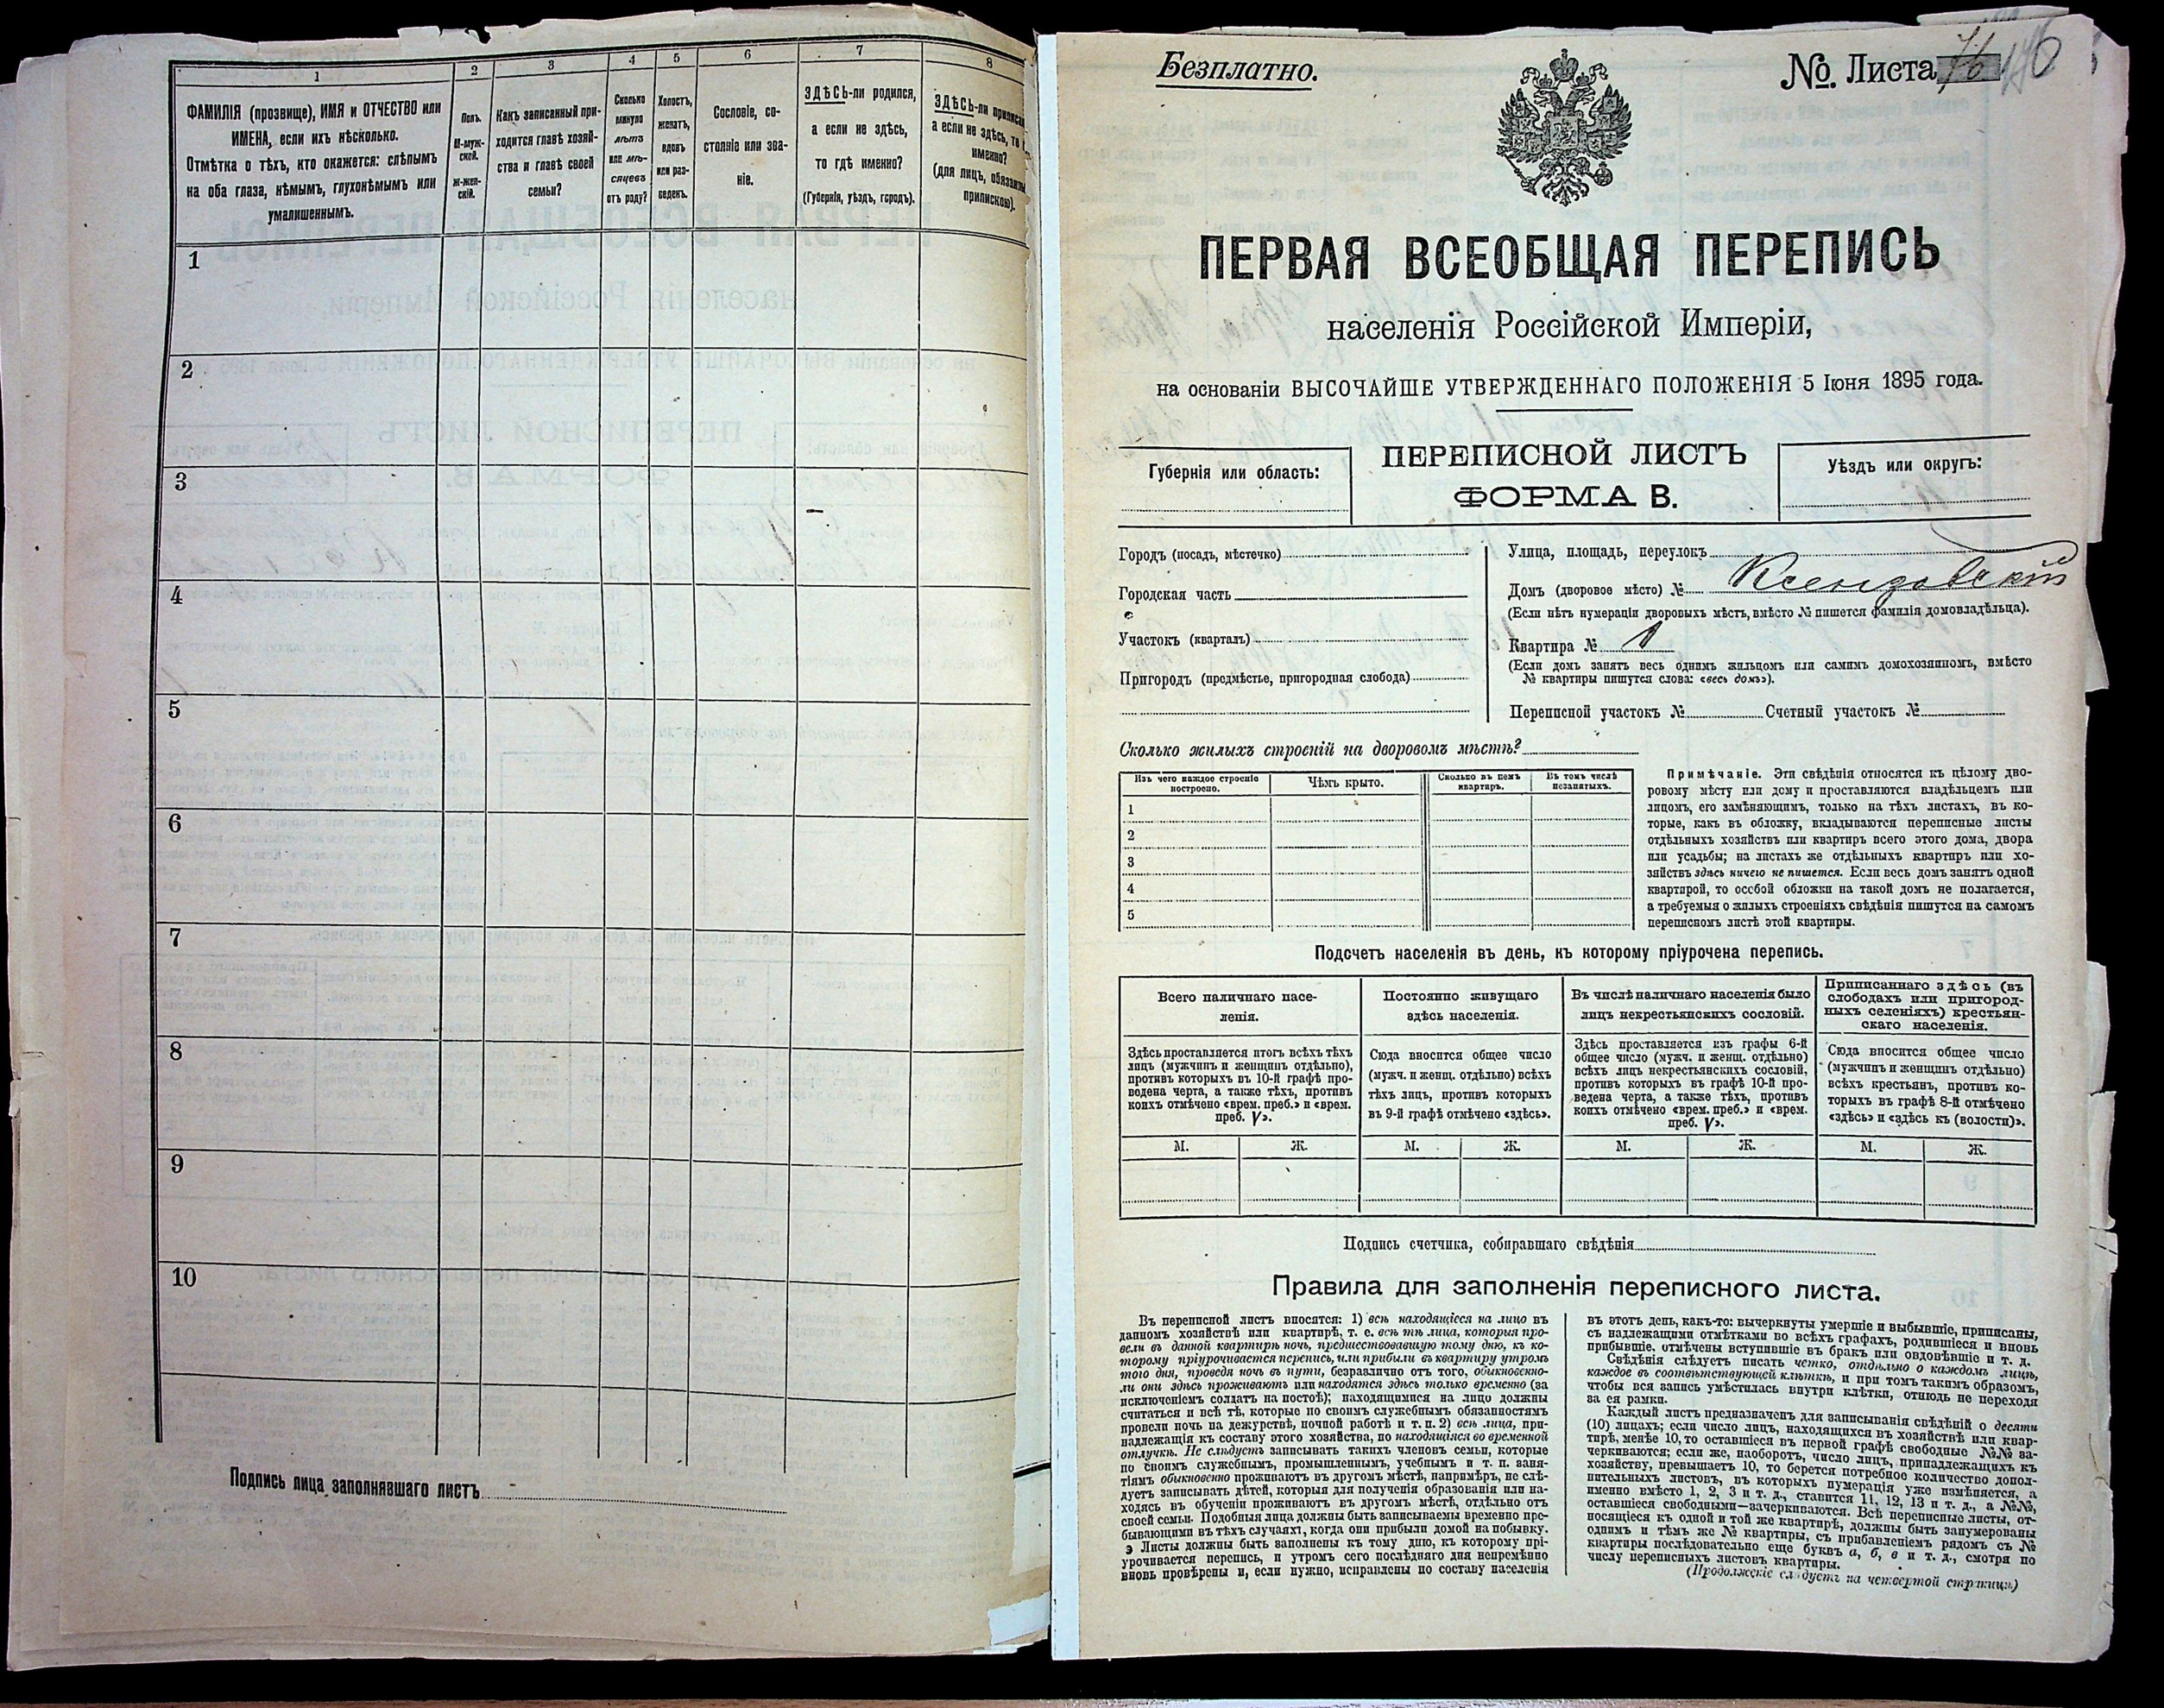 1
2
3
4
5
6
7
8
ФАМИЛІЯ (прозвище), ИМЯ и ОТЧЕСТВО или
ИМЕНА, если ихъ нѣсколько.
Отмѣтка о тѣхъ, кто окажется: слѣпымъ
на оба глаза, нѣмымъ, глухонѣмымъ или
умалишеннымъ.
Полъ.
М-муж-
ской.
Ж-жен-
скій.
Какъ записанный при-
ходится главѣ хозяй-
ства и главѣ своей
семьи?
Сколько
минуло
лѣтъ
или мѣ-
сяцевъ
отъ роду?
Холостъ,
женатъ,
вдовъ
или раз-
веденъ.
Сословіе, со-
стояніе или зва-
ніе.
ЗДѢСЬ-ли родился,
а если не здѣсь,
то гдѣ именно?
(Губернія, уѣздъ, городъ).
ЗДѢСЬ-ли приписан
а если не здѣсь, то
именно?
(для лицъ, обязанн
припискою).
1
2
3
4
5
6
7
8
9
10
Подпись лица заполнявшаго листъ
Безплатно.
№. Листа 76
ПЕРВАЯ ВСЕОБЩАЯ ПЕРЕПИСЬ
населенія Россійской Имперіи,
на основаніи ВЫСОЧАЙШЕ УТВЕРЖДЕННАГО ПОЛОЖЕНІЯ 5 Іюня 1895 года.
Губернія или область:
ПЕРЕПИСНОЙ ЛИСТЪ
ФОРМА В.
Уѣздъ или округъ:
Городъ (посадъ, мѣстечко)
Городская часть
Участокъ (кварталъ)
Пригородъ (предмѣстье, пригородная слобода)
Улица, площадь, переулокъ
Домъ (дворовое мѣсто) № Ксендзовскій
(Если нѣтъ нумераціи дворовыхъ мѣстъ, вмѣсто № пишется фамилія домовладѣльца).
Квартира № 1
(Если домъ занятъ весь однимъ жильцомъ или самимъ домохозяиномъ, вмѣсто
№ квартиры пишутся слова: «весь домъ»).
Переписной участокъ № Счетный участокъ №
Сколько жилыхъ строеній на дворовомъ мѣстѣ?
Изъ чего каждое строеніе
построено.
Чѣмъ крыто.
Сколько въ немъ
квартиръ.
Въ томъ числѣ
незанятыхъ.
1
2
3
4
5
Примѣчаніе. Эти свѣдѣнія относятся къ цѣлому дво-
ровому мѣсту или дому и проставляются владѣльцемъ или
лицомъ, его замѣняющимъ, только на тѣхъ листахъ, въ ко-
торые, какъ въ обложку, вкладываются переписные листы
отдѣльныхъ хозяйствъ или квартиръ всего этого дома, двора
или усадьбы; на листахъ же отдѣльныхъ квартиръ или хо-
зяйствъ здѣсь ничего не пишется. Если весь домъ занятъ одной
квартирой, то особой обложки на такой домъ не полагается,
а требуемыя о жилыхъ строеніяхъ свѣдѣнія пишутся на самомъ
переписномъ листѣ этой квартиры.
Подсчетъ населенія въ день, къ которому пріурочена перепись.
Всего наличнаго насе-
ленія.
Постоянно живущаго
здѣсь населенія.
Въ числѣ наличнаго населенія было
лицъ некрестьянскихъ сословій.
Приписаннаго здѣсь (въ
слободахъ или пригород-
ныхъ селеніяхъ) крестьян-
скаго населенія.
Здѣсь проставляется итогъ всѣхъ тѣхъ
лицъ (мужчинъ и женщинъ отдѣльно),
противъ которыхъ въ 10-й графѣ про-
ведена черта, а также тѣхъ, противъ
коихъ отмѣчено «врем. преб.» и «врем.
преб. V».
Сюда вносится общее число
(мужч. и женщ. отдѣльно) всѣхъ
тѣхъ лицъ, противъ которыхъ
въ 9-й графѣ отмѣчено «здѣсь».
Здѣсь проставляется изъ графы 6-й
общее число (мужч. и женщ. отдѣльно)
всѣхъ лицъ некрестьянскихъ сословій,
противъ которыхъ въ графѣ 10-й про-
ведена черта, а также тѣхъ, противъ
коихъ отмѣчено «врем. преб.» и «врем.
преб. V».
Сюда вносится общее число
(мужчинъ и женщинъ отдѣльно)
всѣхъ крестьянъ, противъ ко-
торыхъ въ графѣ 8-й отмѣчено
«здѣсь» и «здѣсь къ (волости)».
М. Ж. М. Ж. М. Ж. М. Ж.
Подпись счетчика, собиравшаго свѣдѣнія
Правила для заполненія переписного листа.
Въ переписной листъ вносятся: 1) всѣ находящіеся на лицо въ
данномъ хозяйствѣ или квартирѣ, т. е. всѣ тѣ лица, которыя про-
вели въ данной квартирѣ ночь, предшествовавшую тому дню, къ ко-
торому пріурочивается перепись, или прибыли въ квартиру утромъ
того дня, проведя ночь въ пути, безразлично отъ того, обыкновенно-
ли они здѣсь проживаютъ или находятся здѣсь только временно (за
исключеніемъ солдатъ на постоѣ); находящимися на лицо должны
считаться и всѣ тѣ, которые по своимъ служебнымъ обязанностямъ
провели ночь на дежурствѣ, ночной работѣ и т. п. 2) всѣ лица, при-
надлежащія къ составу этого хозяйства, но находящіяся во временной
отлучкѣ. Не слѣдуетъ записывать такихъ членовъ семьи, которые
по своимъ служебнымъ, промышленнымъ, учебнымъ и т. п. заня-
тіямъ обыкновенно проживаютъ въ другомъ мѣстѣ, напримѣръ, не слѣ-
дуетъ записывать дѣтей, которыя для полученія образованія или на-
ходясь въ обученіи проживаютъ въ другомъ мѣстѣ, отдѣльно отъ
своей семьи. Подобныя лица должны быть записываемы временно пре-
бывающими въ тѣхъ случаяхъ, когда они прибыли домой на побывку.
Листы должны быть заполнены къ тому дню, къ которому прі-
урочивается перепись, и утромъ сего послѣдняго дня непремѣнно
вновь провѣрены и, если нужно, исправлены по составу населенія
въ этотъ день, какъ-то: вычеркнуты умершіе и выбывшіе, приписаны,
съ надлежащими отмѣтками во всѣхъ графахъ, родившіеся и вновь
прибывшіе, отмѣчены вступившіе въ бракъ или овдовѣвшіе и т. д.
Свѣдѣнія слѣдуетъ писать четко, отдѣльно о каждомъ лицѣ,
каждое въ соотвѣтствующей клѣткѣ, и при томъ такимъ образомъ,
чтобы вся запись умѣстилась внутри клѣтки, отнюдь не переходя
за ея рамки.
Каждый листъ предназначенъ для записыванія свѣдѣній о десяти
(10) лицахъ; если число лицъ, находящихся въ хозяйствѣ или квар-
тирѣ, менѣе 10, то оставшіеся въ первой графѣ свободные №№ за-
черкиваются; если же, наоборотъ, число лицъ, принадлежащихъ къ
хозяйству, превышаетъ 10, то берется потребное количество допол-
нительныхъ листовъ, въ которыхъ нумерація уже измѣняется, а
именно вмѣсто 1, 2, 3 и т. д., ставится 11, 12, 13 и т. д., а №№,
оставшіеся свободными—зачеркиваются. Всѣ переписные листы, от-
носящіеся къ одной и той же квартирѣ, должны быть занумерованы
однимъ и тѣмъ же № квартиры, съ прибавленіемъ рядомъ съ №
квартиры послѣдовательно еще буквъ а, б, в и т. д., смотря по
числу переписныхъ листовъ квартиры.
(Продолженіе слѣдуетъ на четвертой страницѣ)